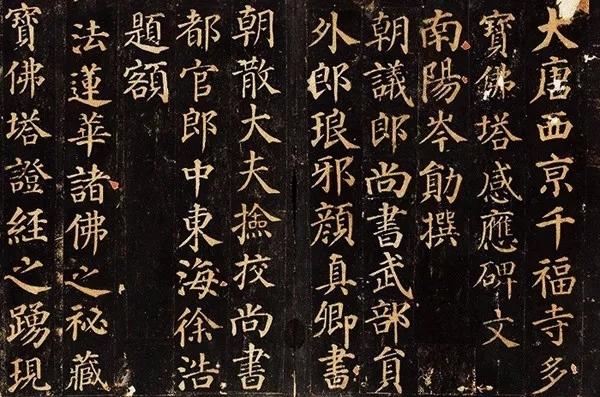 大唐西京千福寺多
寶佛塔感應碑文
南陽岑勛撰
朝議郎尚書武部員
外郎琅邪顏真卿書
朝散大夫撿挍尚書
都官郎中東海徐浩
題額
法蓮華諸佛之祕藏
寶佛塔證經之踴現